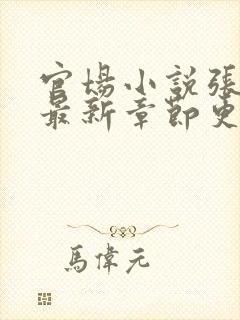 官場小說張
最新章節更
馬偉元